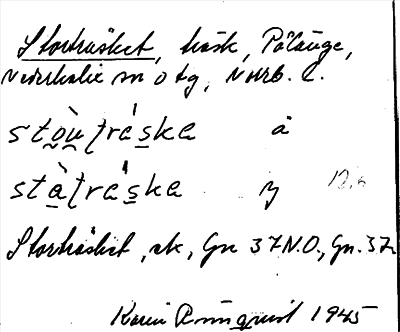 Storträsket, träsk, Pålänge,
Nederkalix sn o tg, Norrb. l.
stọ̀ṳtrá̱ska å
stà̱trá̱ska y
Storträsket, ek, Gn 37 N.O., Gn. 37
Karin Rönnquist 1945